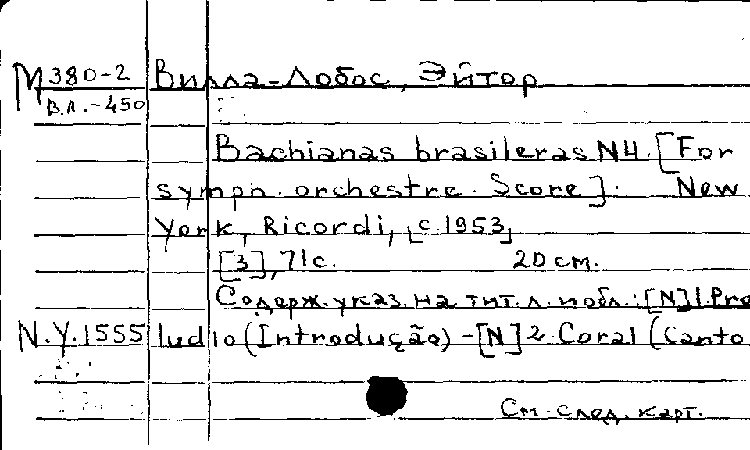 М 380-2 Вилла-Лобос, Эйтор
В.Л.-450
Bachianas brasileras N4. [For
symph. orchestre. Score]. New
York, Ricordi, [c.1953]
[3], 71с. 20 см.
Содерж. указ. на тит. л. и обл.: [N] 1. Pre
N.Y.1555 ludio (Introdução) - [N] 2. Coral (Canto
См. след. карт.